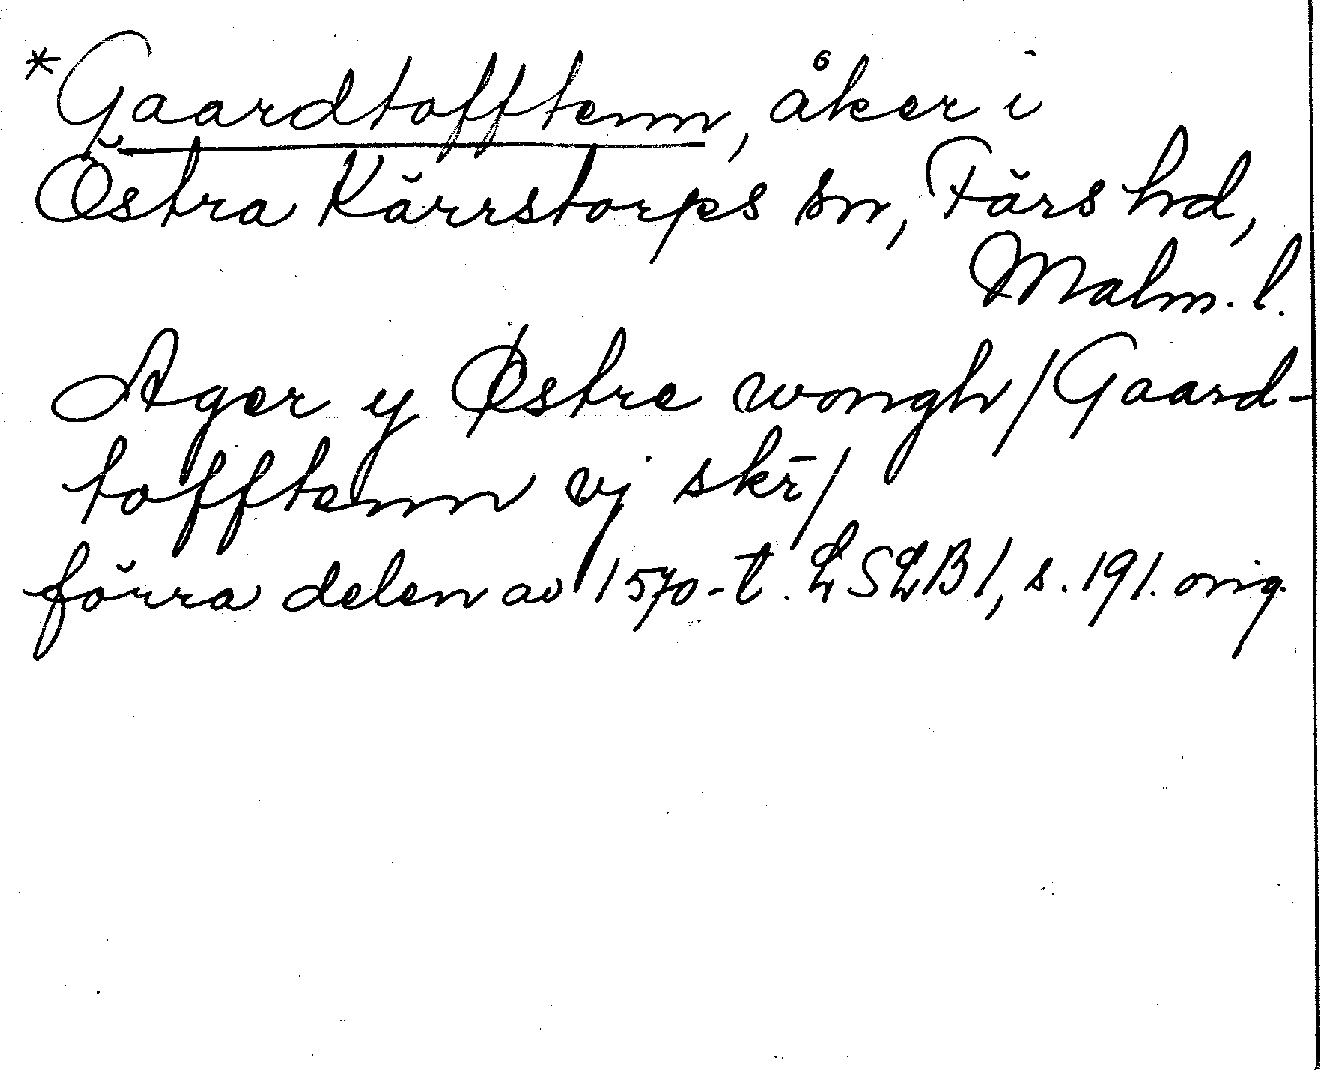 *Gaardtofftenn, åker i
Östra Kärrstorps sn, Färs hd,
Malm. l.
Ager y Østre wongh / Gaard-
tofftenn vj skr̄ /
förra delen av 1570-t. LSLB 1, s. 191. orig.